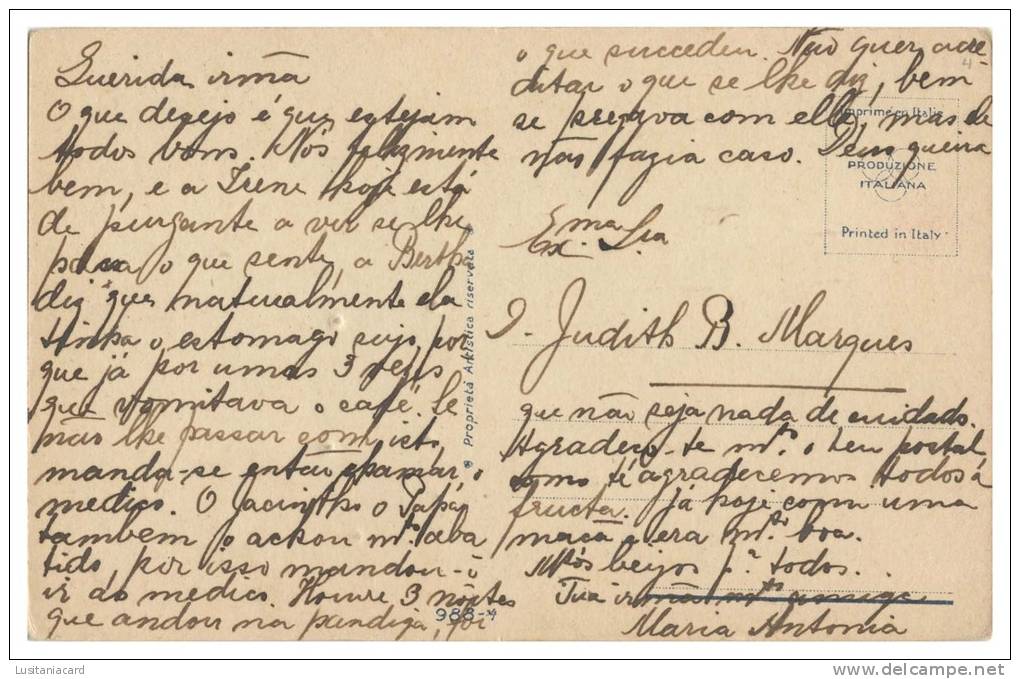 Querida irmã
O que desejo é que estejam
todos bons. Nós felizmente
bem, e a Irene hoje está
de purgante a ver se lhe
passa o que sente, a Bertha
diz que naturalmente ela
tinha o estomago sujo, por
que já por umas 3 vezes
que vomitava o café. Se
não lhe passar com isto,
manda-se então chamar o
medico. O Jacintho o Papá
tambem o achou mto aba
tido, por isso mandou-o
ir ao medico. Houve 3 nôites
que andou na pandiga, foi
o que succedeu. Não quer acre-
ditar o que se lhe diz, bem
se serava com elle, mas ele
não fazia caso. Deus queira
Exma. Sra
D. Judith B. Marques
que não seja nada de cuidado.
Agradeço-te mto o teu postal
como te agradecemos todos á
fructa. Já hoje comi uma
maçã e era mto boa.
Mtos beijos pa todos.
Tua irmã mto amiga
Maria Antonia
Proprietà Artistica riservata
988-4
Imprimé en Italie
PRODUZIONE
ITALIANA
Printed in Italy
4
Lusitaniacard
delcampe.net